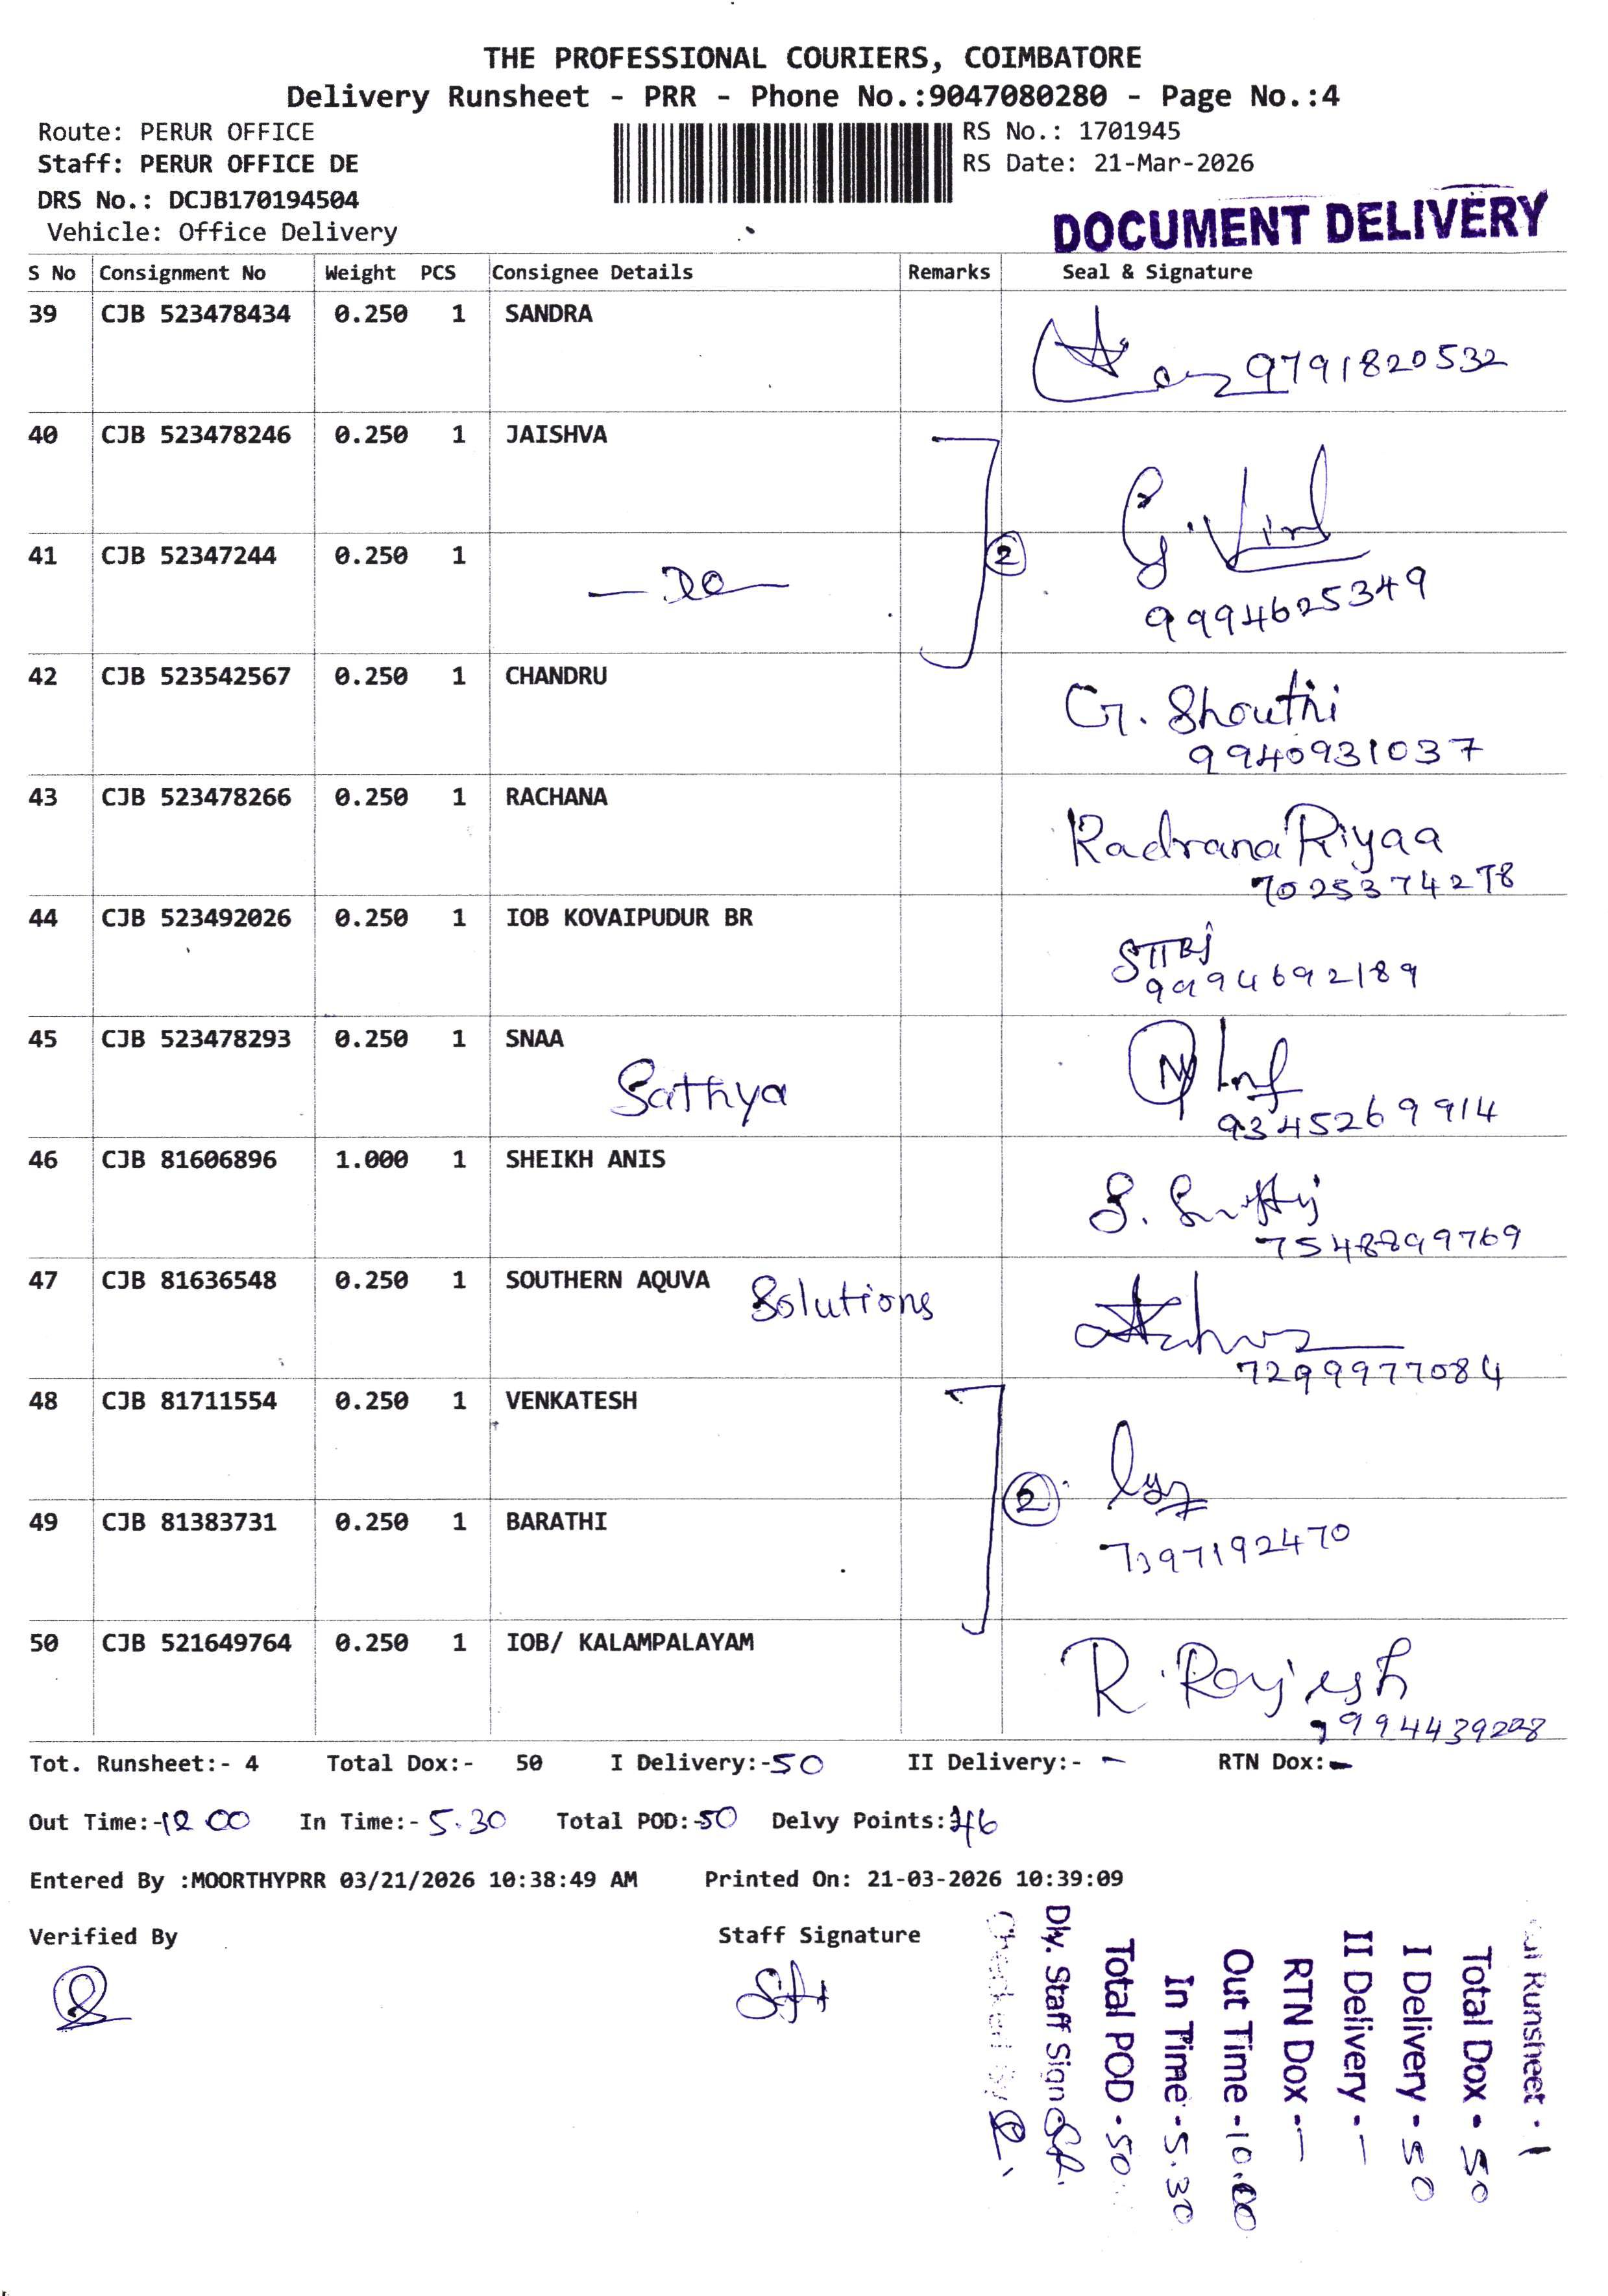 THE PROFESSIONAL COURIERS, COIMBATORE
Delivery Runsheet - PRR - Phone No.:9047080280 - Page No.:4
Route: PERUR OFFICE
RS No.: 1701945
Staff: PERUR OFFICE DE
RS Date: 21-Mar-2026
DRS No.: DCJB170194504
Vehicle: Office Delivery
DOCUMENT DELIVERY
S No Consignment No Weight PCS Consignee Details Remarks Seal & Signature
39 CJB 523478434 0.250 1 SANDRA
9791820532
40 CJB 523478246 0.250 1 JAISHVA
41 CJB 52347244 0.250 1 2
— DO —
9994625349
42 CJB 523542567 0.250 1 CHANDRU
G. Shouthi
9940931037
43 CJB 523478266 0.250 1 RACHANA
Radrana Riyaa
7025374278
44 CJB 523492026 0.250 1 IOB KOVAIPUDUR BR
9994692189
45 CJB 523478293 0.250 1 SNAA
Sathya
9345269914
46 CJB 81606896 1.000 1 SHEIKH ANIS
7548899769
47 CJB 81636548 0.250 1 SOUTHERN AQUVA Solutions
7299977084
48 CJB 81711554 0.250 1 VENKATESH
2
49 CJB 81383731 0.250 1 BARATHI
7397192470
50 CJB 521649764 0.250 1 IOB/ KALAMPALAYAM
R. Rajesh
Tot. Runsheet:- 4 Total Dox:- 50 I Delivery:-50 II Delivery:- - RTN Dox:-
Out Time:-12 00 In Time:- 5.30 Total POD:-50 Delvy Points:46
Entered By :MOORTHYPRR 03/21/2026 10:38:49 AM Printed On: 21-03-2026 10:39:09
Verified By Staff Signature
Runsheet - 1
Total Dox - 50
I Delivery - 50
II Delivery - -
RTN Dox - -
Out Time - 10.00
In Time - 5.30
Total POD - 50
Dly. Staff Sign
Checked By